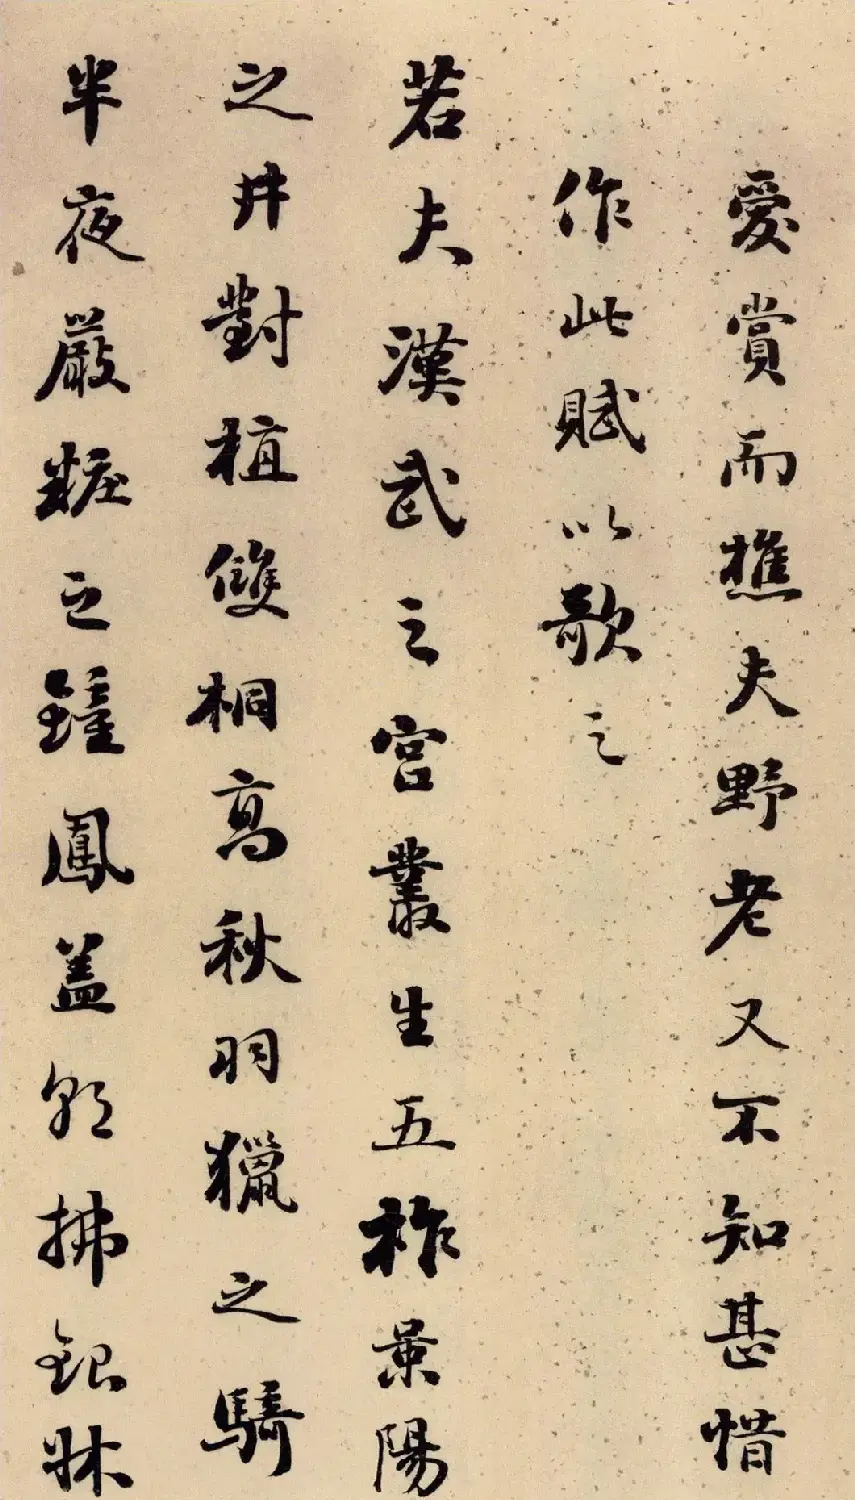 愛賞而樵夫野老又不知甚惜
作此賦以歌之
若夫漢武之宮叢生五柞景陽
之井對植雙桐高秋羽獵之騎
半夜嚴粧之鐘鳳蓋朝拂銀牀